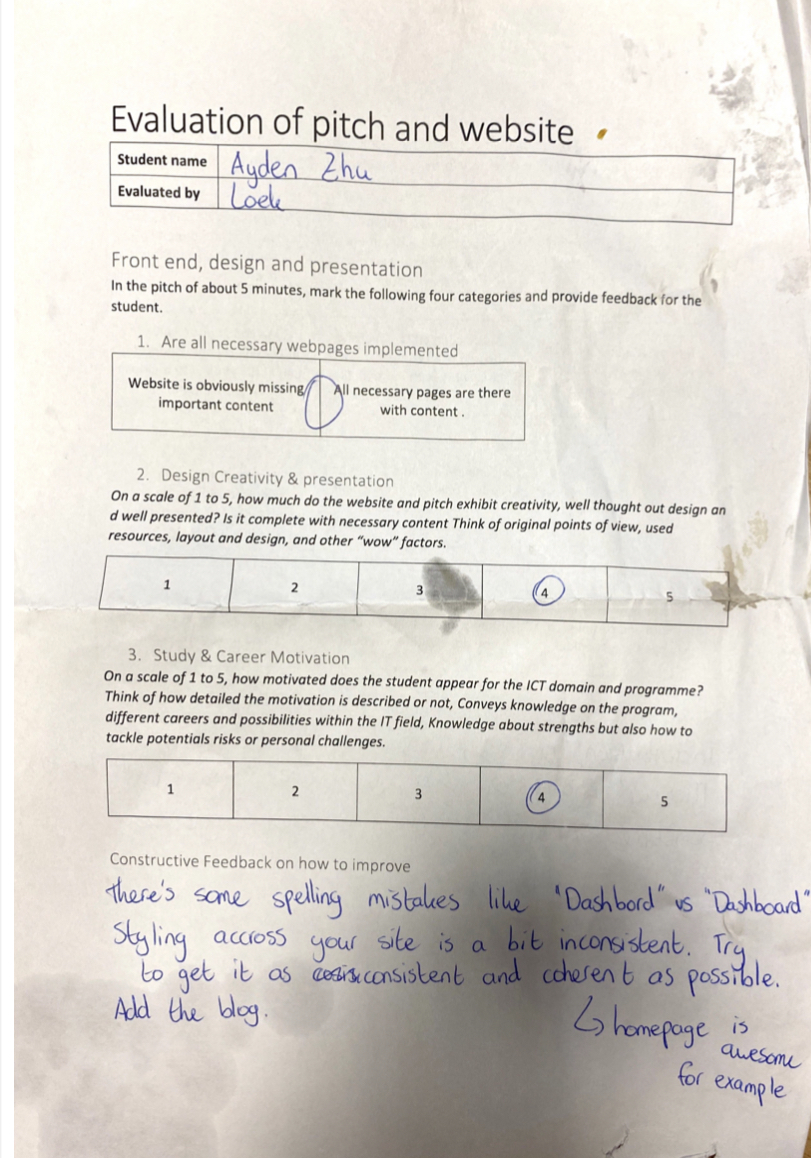 Evaluation of pitch and website
Student name Ayden Zhu
Evaluated by Loek
Front end, design and presentation
In the pitch of about 5 minutes, mark the following four categories and provide feedback for the
student.
1. Are all necessary webpages implemented
Website is obviously missing
important content
All necessary pages are there
with content .
2. Design Creativity & presentation
On a scale of 1 to 5, how much do the website and pitch exhibit creativity, well thought out design an
d well presented? Is it complete with necessary content Think of original points of view, used
resources, layout and design, and other “wow” factors.
1 2 3 4 5
3. Study & Career Motivation
On a scale of 1 to 5, how motivated does the student appear for the ICT domain and programme?
Think of how detailed the motivation is described or not, Conveys knowledge on the program,
different careers and possibilities within the IT field, Knowledge about strengths but also how to
tackle potentials risks or personal challenges.
1 2 3 4 5
Constructive Feedback on how to improve
there's some spelling mistakes like "Dashbord" vs "Dashboard"
Styling accross your site is a bit inconsistent. Try
to get it as consistent and coherent as possible.
Add the blog.
↳ homepage is
awesome
for example